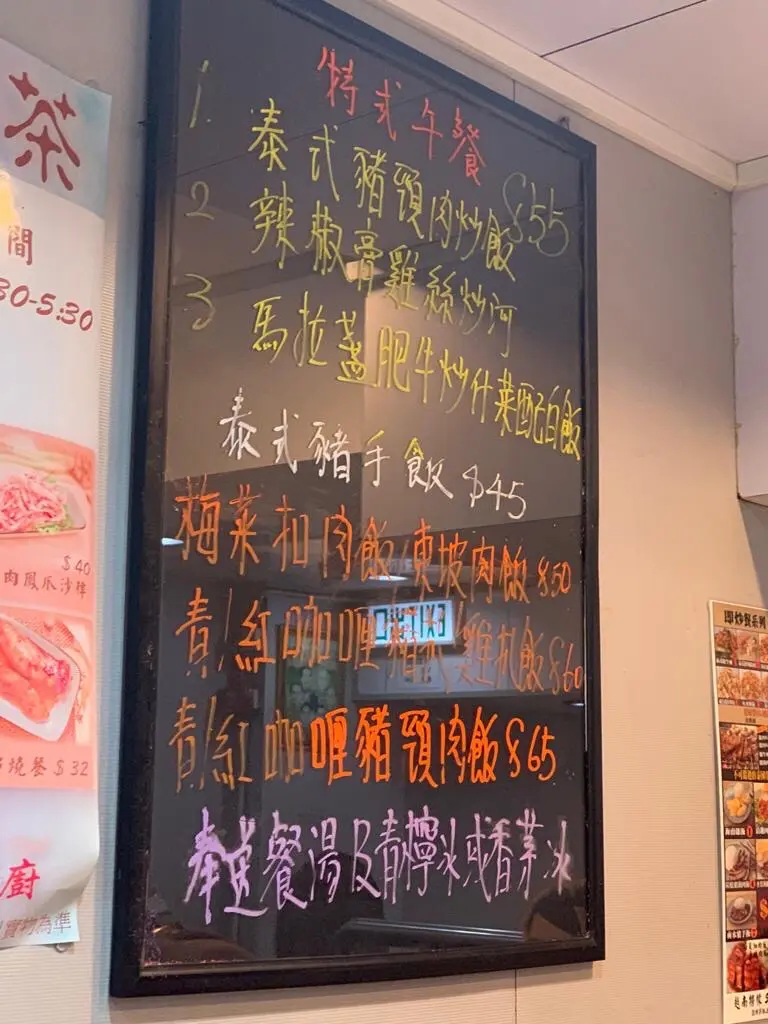 茶
間
30-5:30
$40
肉鳳爪沙律
燒餐 $32
廚
實物為準
特式午餐
1. 泰式豬頸肉炒飯 $55
2 辣椒膏雞絲炒河
3 馬拉盞肥牛炒什菜配白飯
泰式豬手飯 $45
梅菜扣肉飯/東坡肉飯 $50
青/紅咖喱豬扒/雞扒飯 $60
青/紅咖喱豬頸肉飯 $65
奉送餐湯及青檸冰或香茅冰
EXIT 出口
即炒餐系列